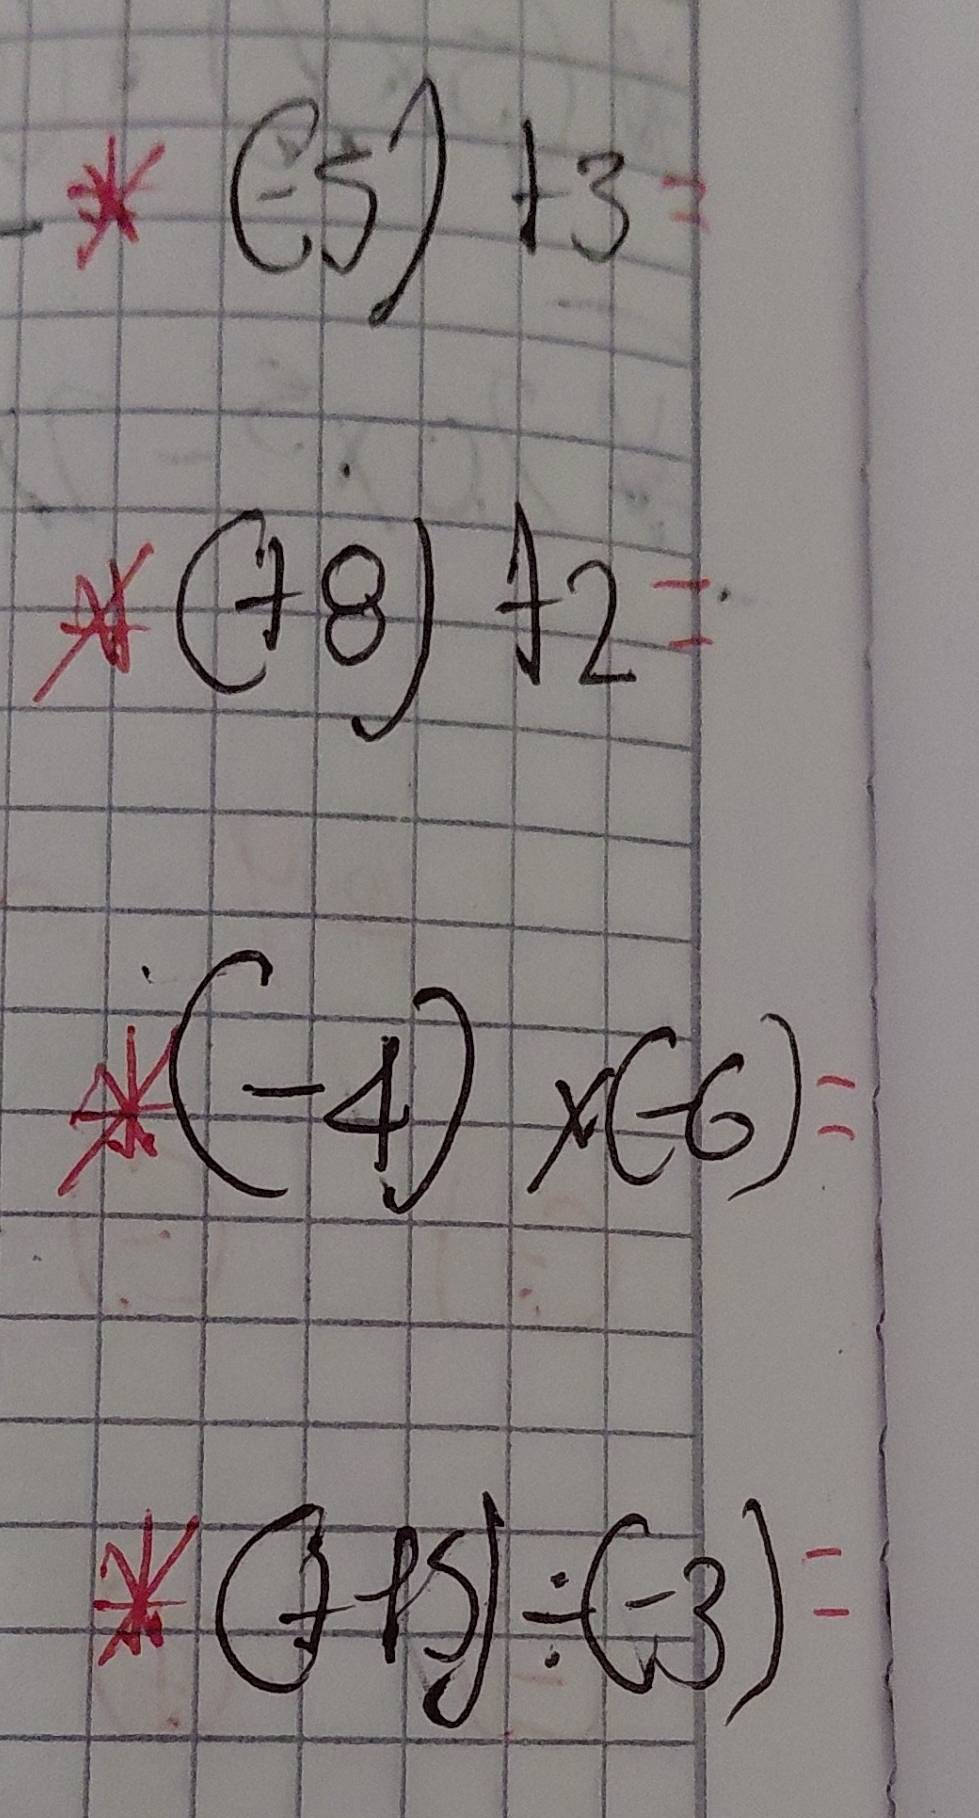 * (-5) +3=
* (+8) +2=
* (-4) x(-6)=
* (+15) ÷(-3)=